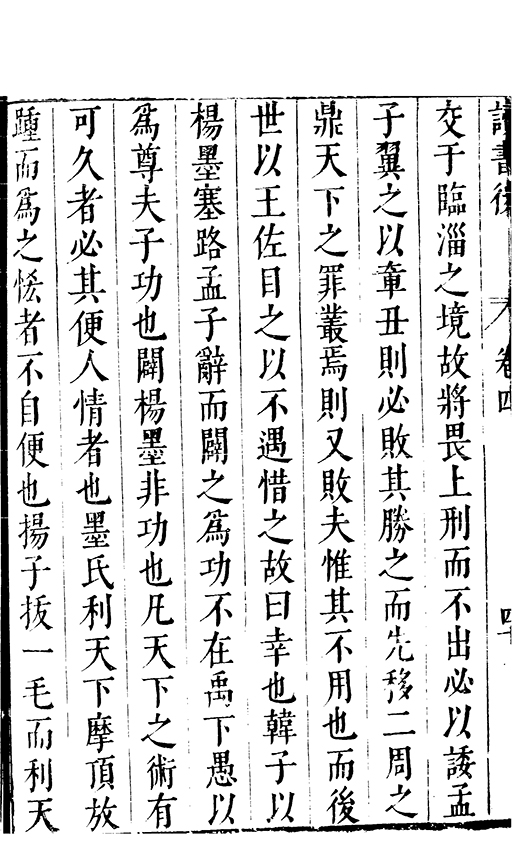 讀書後 卷四 四十
交于臨淄之境故將畏上刑而不出必以諉孟
子翼之以章丑則必敗其勝之而先移二周之
鼎天下之罪叢焉則又敗夫惟其不用也而後
世以王佐目之以不遇惜之故曰幸也韓子以
楊墨塞路孟子辭而闢之爲功不在禹下愚以
爲尊夫子功也闢楊墨非功也凡天下之術有
可久者必其便人情者也墨氏利天下摩頂放
踵而爲之恡者不自便也揚子拔一毛而利天